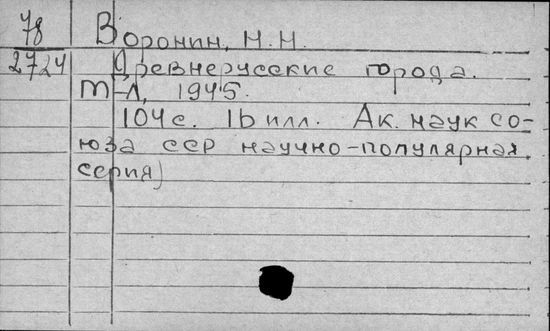 78
2724
Воронин, Н.Н.
Древнерусские города.
М-Л, 1945.
104с. 16 илл. Ак. наук со-
юза ССР научно-популярная
серия)